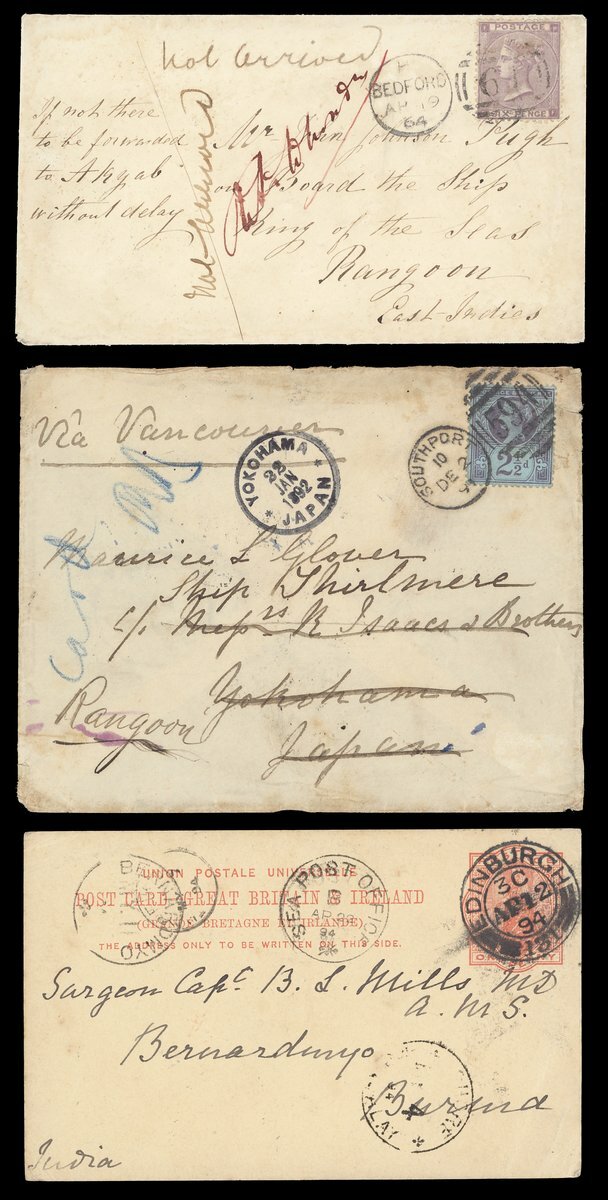 Not Arrived
POSTAGE
SIX PENCE
H
BEDFORD
AP 19
64
If not there
to be forwarded
to Akyab
without delay
Not Arrived
Mr John Johnson Pugh
on Board the Ship
King of the Seas
Rangoon
East Indies
Via Vancouver
YOKOHAMA
28
JAN
1892
JAPAN
SOUTHPORT
DE
2½d
Maurice L Glover
Ship Thirlmere
c/. Messrs R Isaacs & Brothers
Yokohama
Japan
Rangoon
UNION POSTALE UNIVERSELLE
POST CARD, GREAT BRITAIN & IRELAND
(GRANDE BRETAGNE ET IRLANDE)
THE ADDRESS ONLY TO BE WRITTEN ON THIS SIDE.
SEA POST OFFICE
B
AP 28
94
EDINBURGH
3 C
AP 12
94
131
Surgeon Capt. B. L. Mills, MD
A. M. S.
Bernardmyo
Burma
India